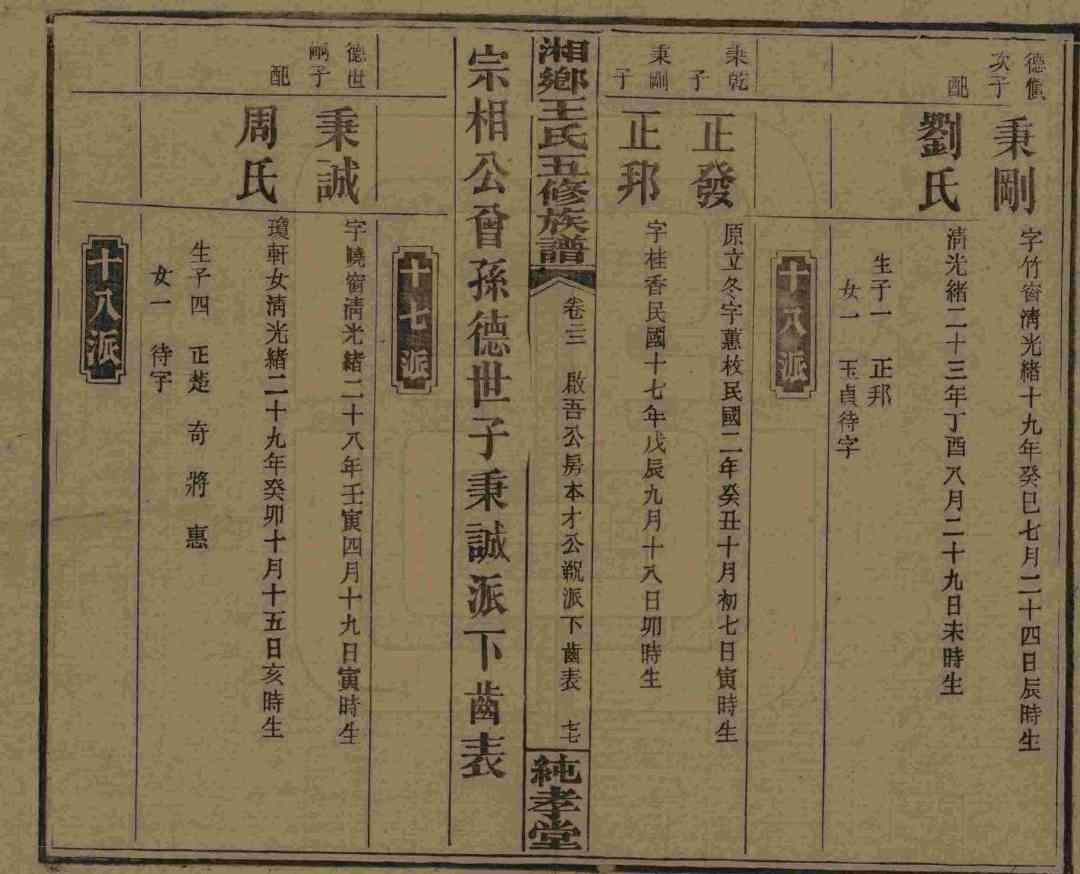 次子
秉剛
字竹窗清光緒十九年癸巳七月二十四日辰時生
配
劉氏
清光緒二十三年丁酉八月二十九日未時生
生子一 正邦
女一 玉貞待字
十八派
秉乾子
正發
原立冬字蕙枚民國二年癸丑十月初七日寅時生
秉剛子
正邦
字桂香民國十七年戊辰九月十八日卯時生
湘鄉王氏五修族譜
卷三 啟吾公房本才公派下齒表
純孝堂
宗相公曾孫德世子秉誠派下齒表
十七派
德世嗣子
秉誠
字曉窗清光緒二十八年壬寅四月十九日寅時生
配
周氏
瓊軒女清光緒二十九年癸卯十月十五日亥時生
生子四 正楚 奇 將 惠
女一 待字
十八派